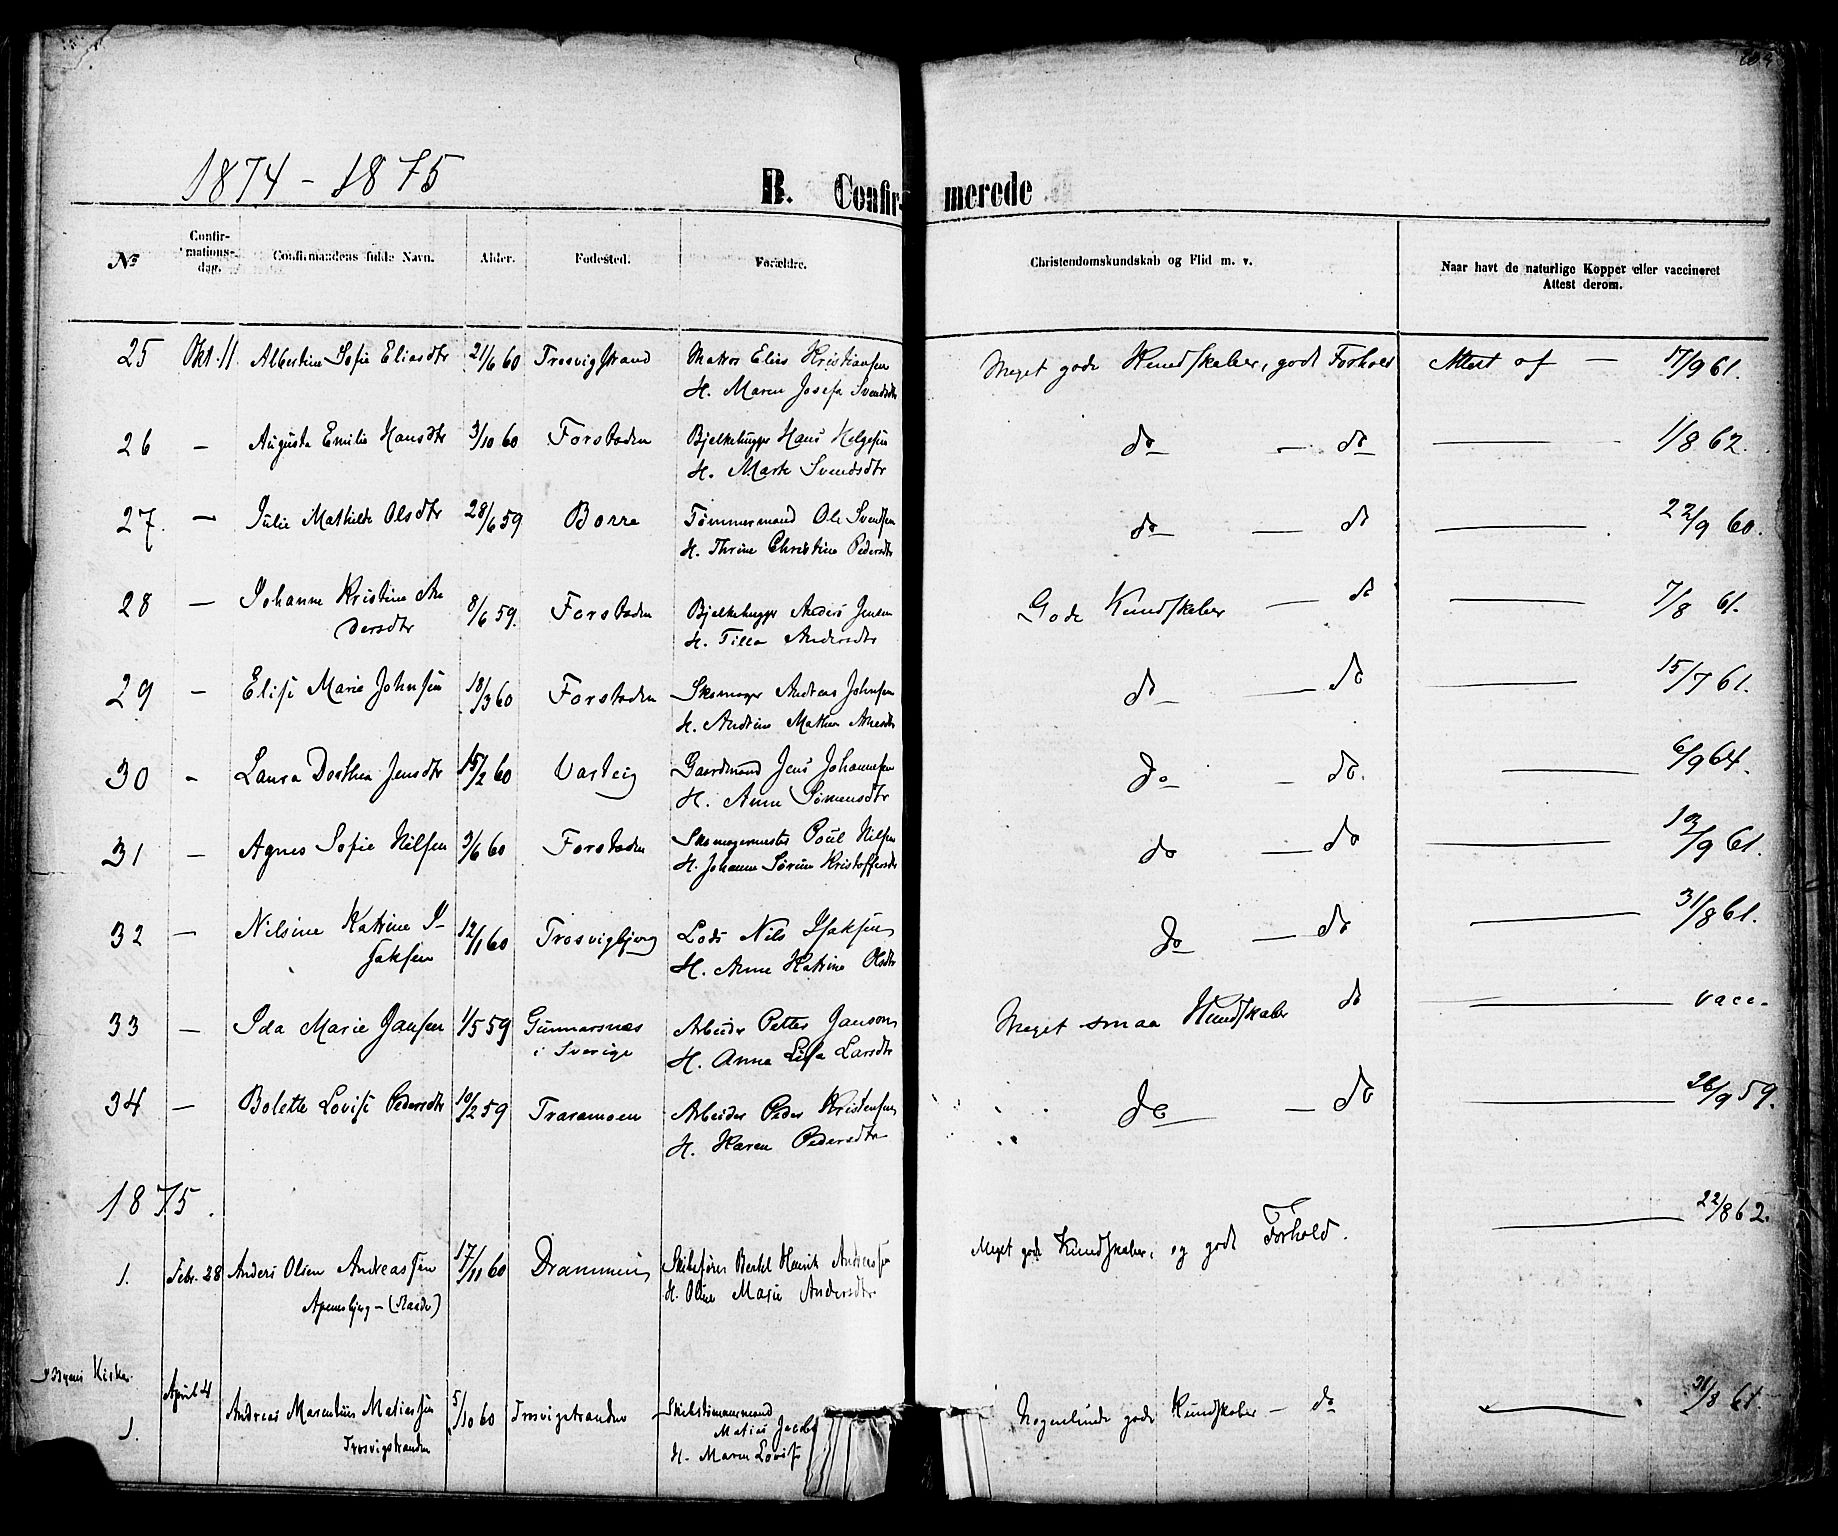 1874 - 1875
B. Confir- merede
No
Confir-
mations-
dag.
Confirmandens fulde Navn.
Alder.
Fødested.
Forældre.
Christendomskundskab og Flid m. v.
Naar havt de naturlige Kopper eller vaccineret
Attest derom.
25 Okt. 11 Albertine Sofie Eliasdtr 21/6 60 Trosvigstrand Matros Elias Kristiansen Meget gode Kundskaber, godt Forhold Attest af — 17/9 61.
H. Maren Josefa Svendsdtr
26 — Augusta Emilie Hansdtr 3/10 60 Forstaden Bjelkehugger Hans Helgesen do — do — 1/8 62.
H. Marte Svendsdtr
27. — Julie Mathilde Olsdtr 28/6 59 Borre Tømmermand Ole Svendsen do — do — 22/9 60.
H. Thrine Christine Pedersdtr
28 — Johanne Kristine An 8/6 59. Forstaden Bjelkehugger Anders Jensen Gode Kundskaber — do — 7/8 61.
dersdtr H. Tilla Andersdtr
29 — Elise Marie Johnsen 18/3 60 Forstaden Skomager Andreas Johnsen do — do — 15/7 61.
H. Andrine Mathea
30 - Laura Dorthea Jensdtr 15/2 60 Varteig Gaardmand Jens Johannesen do — do. — 6/9 64.
H. Anne Simensdtr
31 — Agnes Sofie Nilsen 3/6 60 Forstaden Skomagermester Poul Nilsen do — do — 13/9 61.
H. Johanne Sørine Kristoffersdtr
32 — Nilsine Katrine I- 12/1 60 Trosvigbjerg Lods Nils Isaksen do — do — 31/8 61.
saksen H. Anne Katrine Olsdtr
33 — Ida Marie Jansen 1/5 59 Gunnarsnæs Arbeider Petter Janson Meget smaa Kundskaber do — vacc.
i Sverige H. Anna Lisa Larsdtr
34 — Bolette Lovise Pedersdtr 10/2 59 Traramoen Arbeider Peder Kristensen do — do — 26/9 59.
H. Karen Pedersdtr
1875.
1. Febr. 28 Anders Olsen Andreassen 17/11 60 Drammen Skibsfører Bertel Henrik Andreassen Meget gode Kundskaber, og godt Forhold. — 22/8 62.
Apenesbjerg — (Raade) H. Oline Marie Andersdtr
I Byens Kirke.
1. April 4 Andreas Marentius Matiassen 5/10 60 Trosvigstranden Skibstømmermand Nogenlunde gode Kundskaber — do — 31/8 61.
Trosvigstranden Matias Jacobs
H. Maren Lovise